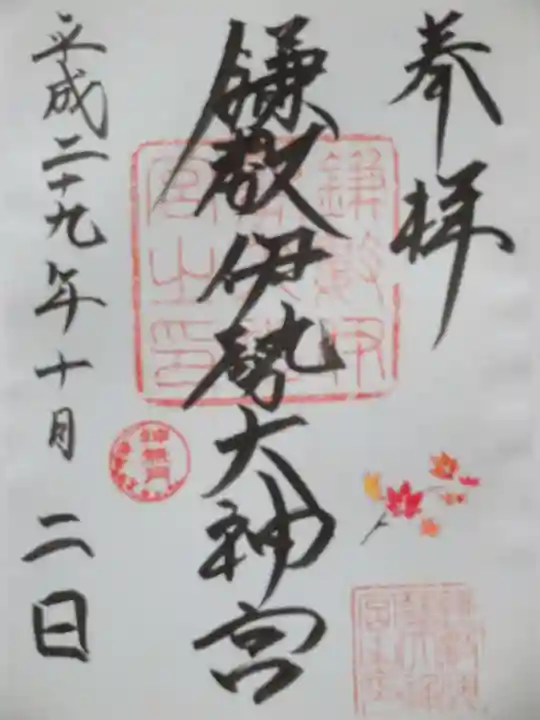 奉拝
鎌数伊勢大神宮
平成二十九年十月二日
神無月